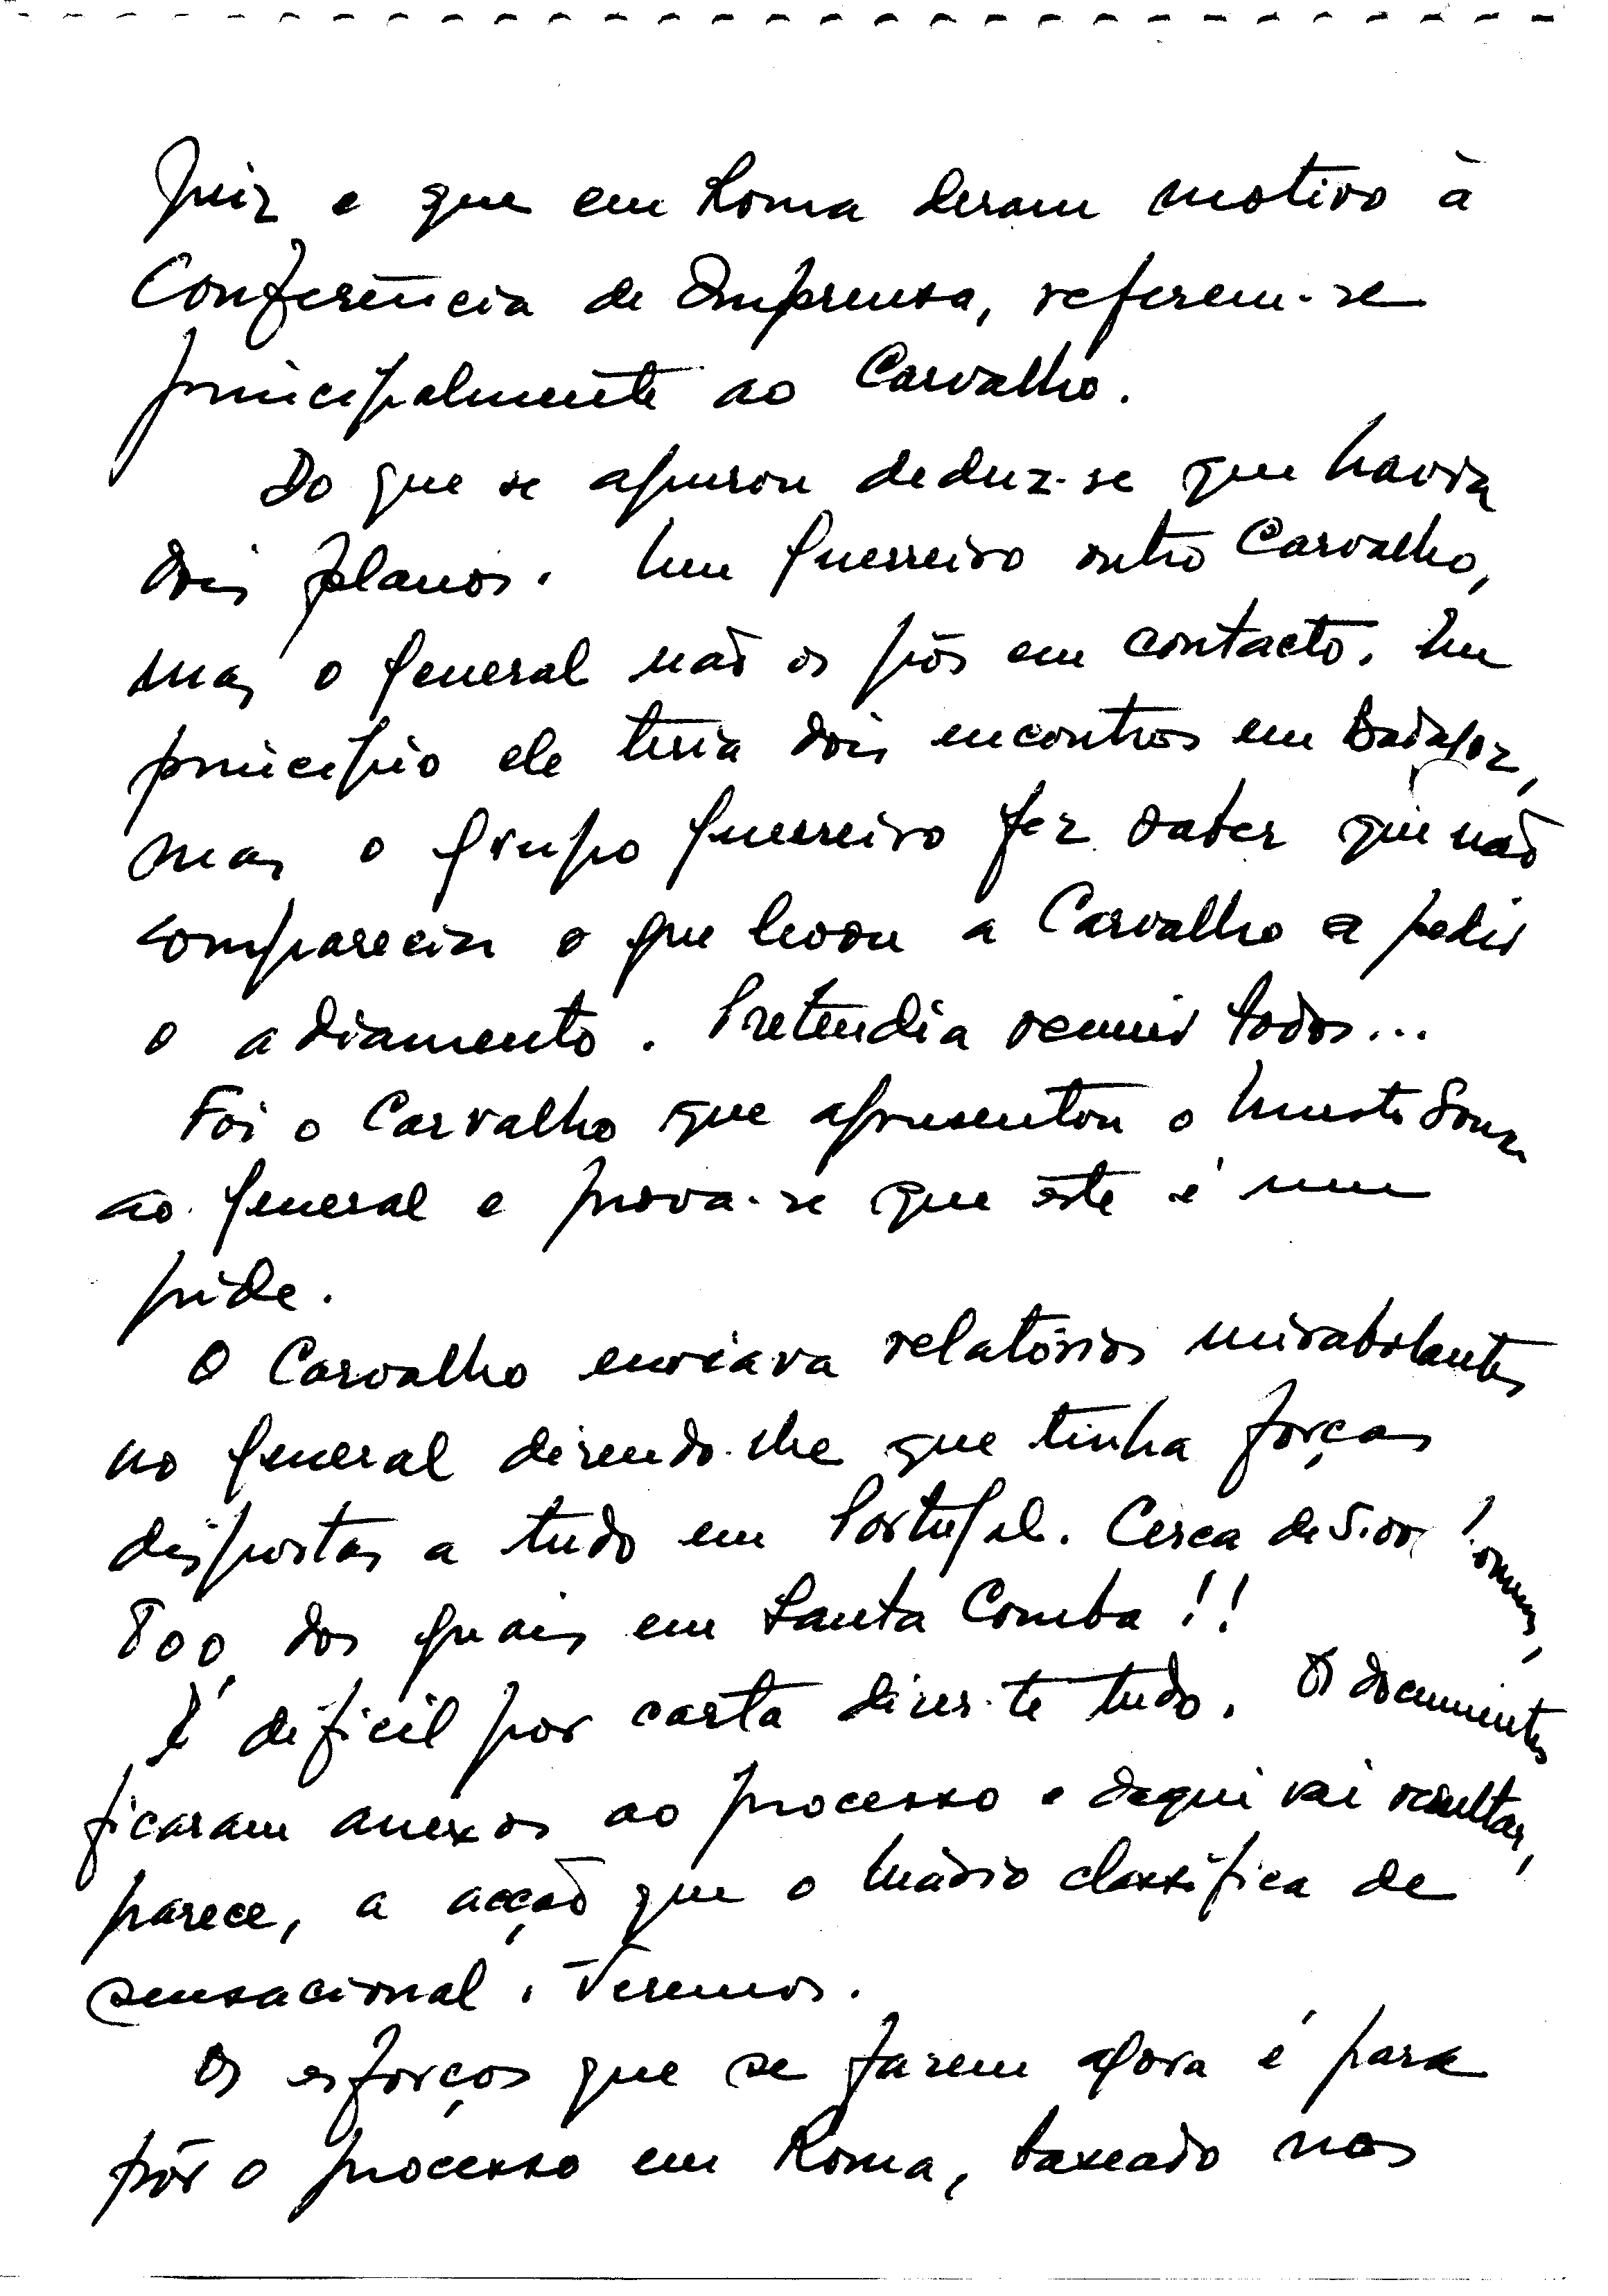 Juiz e que em Roma deram motivo à
Conferência de Imprensa, referem-se
principalmente ao Carvalho.
Do que se apurou deduz-se que havia
dois planos. Um Guerreiro outro Carvalho,
mas o General não os pôs em contacto. Em
princípio ele teria dois encontros em Badajoz,
mas o grupo Guerreiro fez saber que não
comparecia o que levou a Carvalho a pedir
o adiamento. Pretendia reunir todos...
Foi o Carvalho que apresentou o Ernesto Sousa
ao General e prova-se que este é um
pide.
O Carvalho enviava relatórios mirabolantes
ao General dizendo-lhe que tinha forças
dispostas a tudo em Portugal. Cerca de 5.000 homens,
800 dos quais em Santa Comba!!
É difícil por carta dizer-te tudo. Os documentos
ficaram anexos ao processo e daqui vai resultar,
parece, a acção que o Mário classifica de
sensacional. Veremos.
Os esforços que se fazem agora é para
pôr o processo em Roma, baseado nos